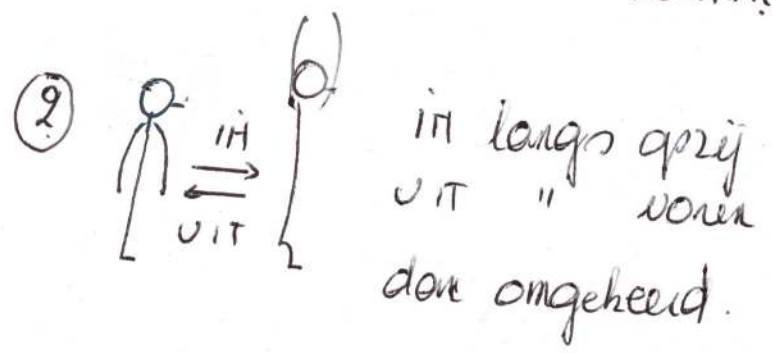 2
IN
UIT
IN langs opzij
UIT " voren
dan omgekeerd.